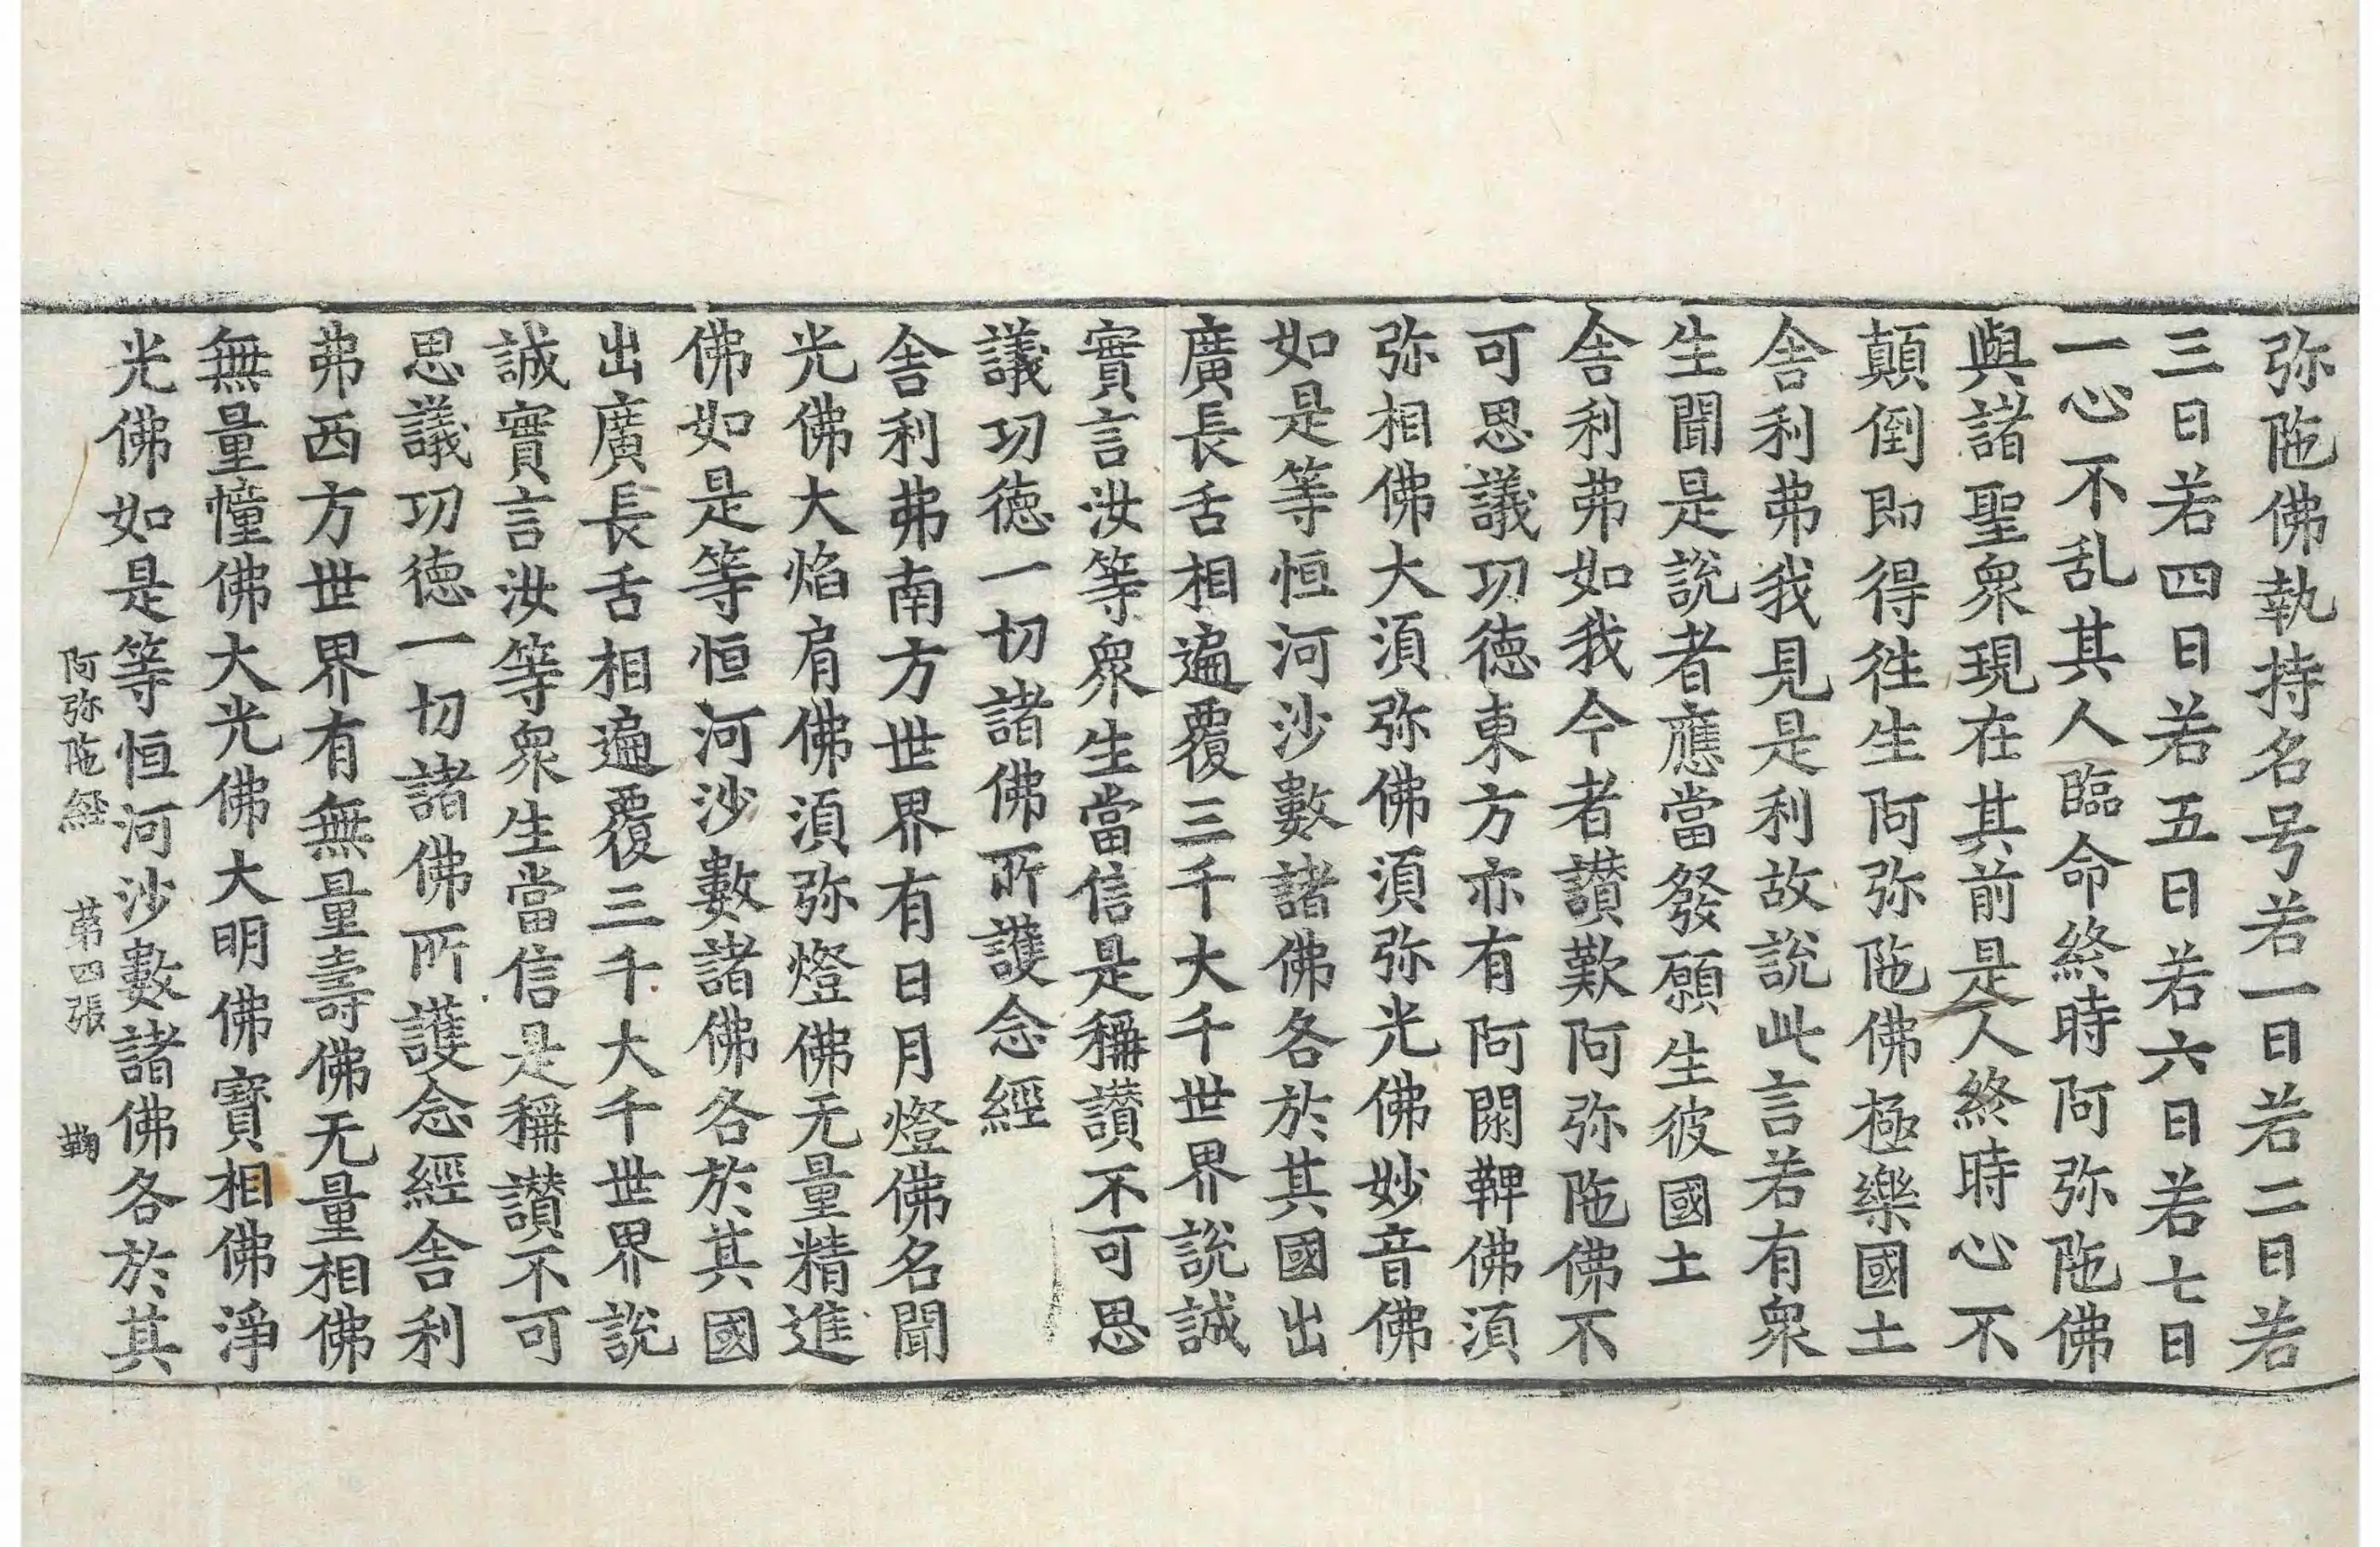 弥陁佛執持名号若一日若二日若
三日若四日若五日若六日若七日
一心不乱其人臨命終時阿弥陁佛
與諸聖衆現在其前是人終時心不
顛倒即得徃生阿弥陁佛極樂國土
舎利弗我見是利故說此言若有衆
生聞是說者應當發願生彼國土
舎利弗如我今者讃歎阿弥陁佛不
可思議功德東方亦有阿閦鞞佛須
弥相佛大須弥佛須弥光佛妙音佛
如是等恒河沙數諸佛各於其國出
廣長舌相遍覆三千大千世界說誠
實言汝等衆生當信是稱讃不可思
議功德一切諸佛所護念經
舎利弗南方世界有日月燈佛名聞
光佛大焰肩佛須弥燈佛无量精進
佛如是等恒河沙數諸佛各於其國
出廣長舌相遍覆三千大千世界說
誠實言汝等衆生當信是稱讃不可
思議功德一切諸佛所護念經舎利
弗西方世界有無量壽佛无量相佛
無量幢佛大光佛大明佛寳相佛淨
光佛如是等恒河沙數諸佛各於其
阿弥陁經 第四張 鞠